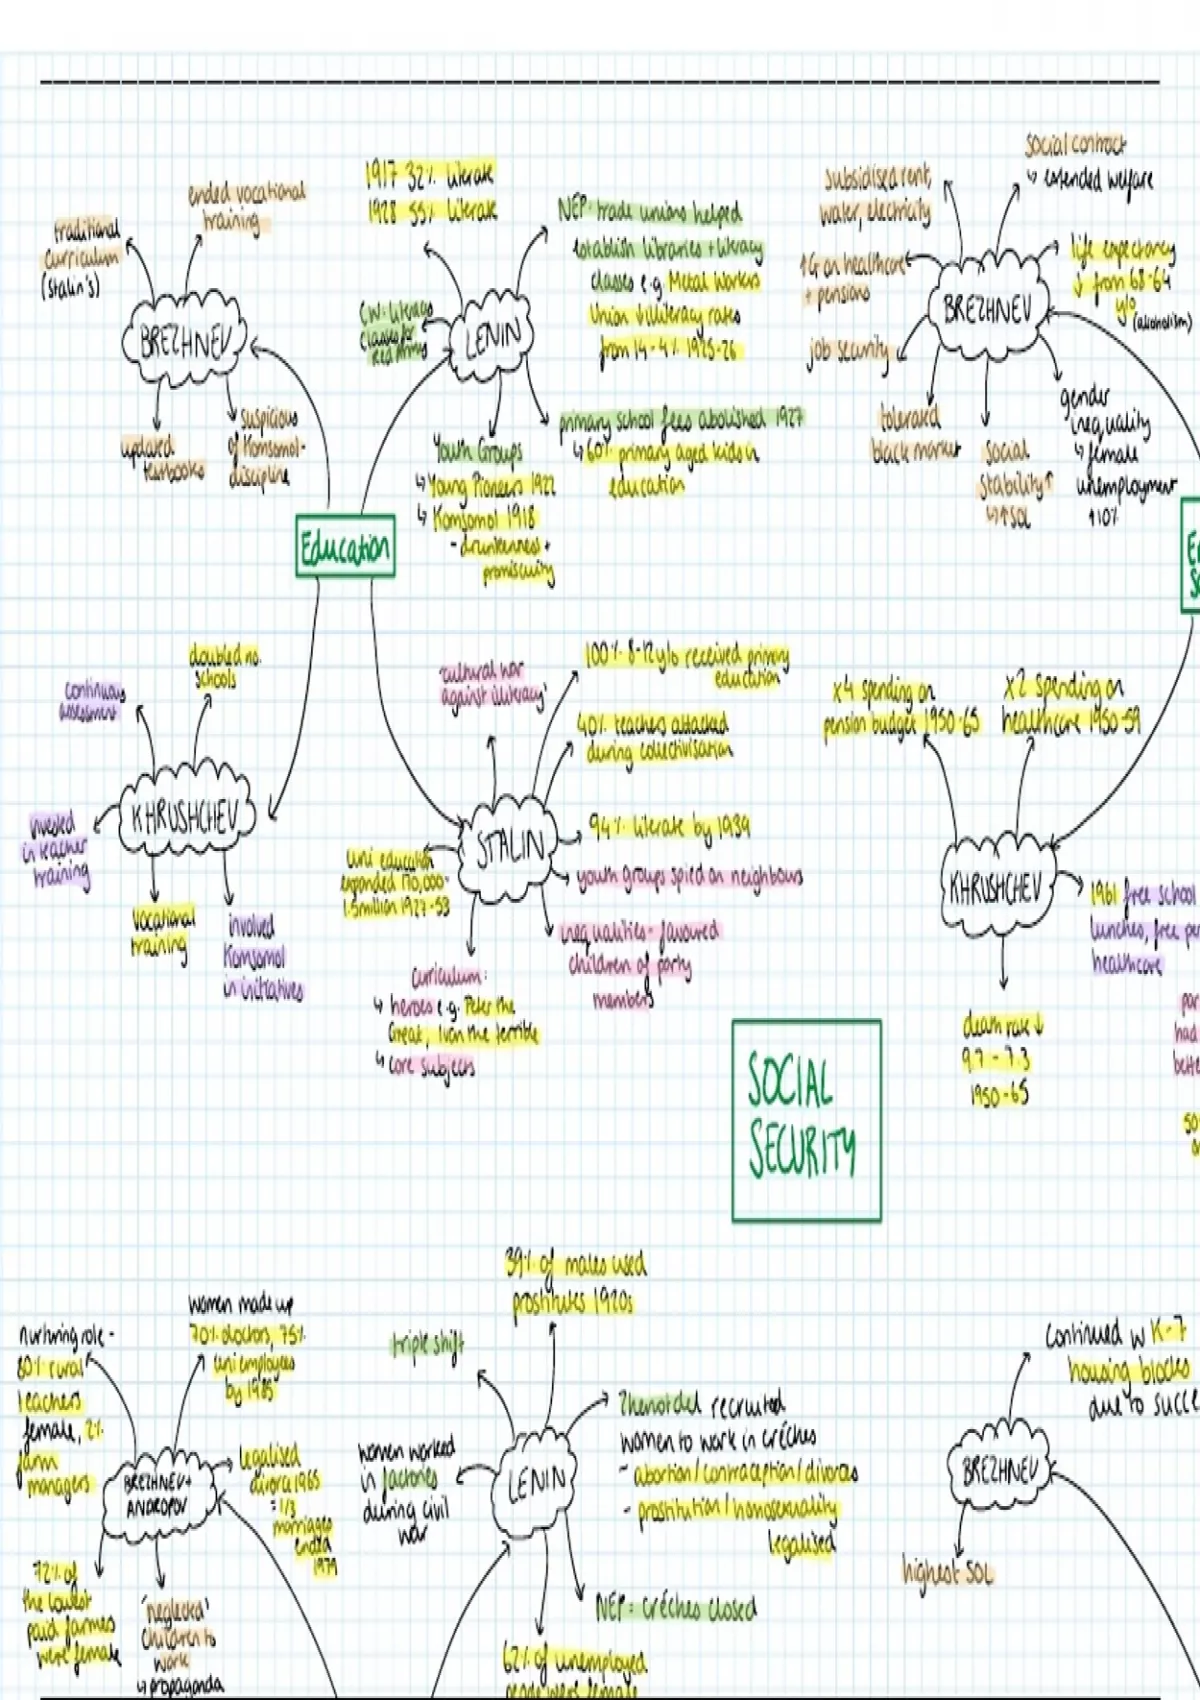 traditional
curriculum
(Stalin's)
ended vocational
training
BREZHNEV
updated
textbooks
suspicious
of Komsomol-
discipline
1917 32% literate
1928 55% literate
CW: literacy
classes for
red army
LENIN
NEP: trade unions helped
establish libraries + literacy
classes e.g. Metal Workers
Union ↓ illiteracy rates
from 14-4% 1925-26
primary school fees abolished 1927
↳ 60% primary aged kids in
education
Youth Groups
↳ Young Pioneers 1922
↳ Komsomol 1918
- drunkenness +
promiscuity
Education
continuous
assessment
doubled no.
schools
KHRUSHCHEV
invested
in teacher
training
vocational
training
involved
Komsomol
in initiatives
'cultural war
against illiteracy'
100% 8-12 y/o received primary
education
40% teachers attacked
during collectivisation
STALIN
94% literate by 1939
youth groups spied on neighbours
inequalities- favoured
children of party
members
uni education
expanded 170,000-
1.5 million 1927-53
curriculum:
↳ heroes e.g. Peter the
Great, Ivan the terrible
↳ core subjects
subsidised rent,
water, electricity
social contract
↳ extended welfare
↑G on healthcare
+ pensions
BREZHNEV
life expectancy
↓ from 68-64
y/o
(alcoholism)
job security
tolerated
black market
social
stability↑
↳ ↑SOL
gender
inequality
↳ female
unemployment
↑10%
x4 spending on
pension budget 1950-65
x2 spending on
healthcare 1950-59
KHRUSHCHEV
1961 free school
lunches, free
healthcare
death rate ↓
9.7 - 7.3
1950-65
SOCIAL
SECURITY
nurturing role -
80% rural
teachers
female, 2%
farm
managers
women made up
70% doctors, 75%
uni employees
by 1985
BREZHNEV+
ANDROPOV
legalised
divorce 1965
= 1/3
marriages
ended
1979
72% of
the lowest
paid farmers
were female
'neglected'
children to
work
↳ propaganda
39% of males used
prostitutes 1920s
triple shift
women worked
in factories
during civil
war
LENIN
Zhenotdel recruited
women to work in créches
- abortion/contraception/divorce
- prostitution/homosexuality
legalised
NEP: créches closed
62% of unemployed
people were female
Continued w K-7
housing blocks
due to
BREZHNEV
highest SOL